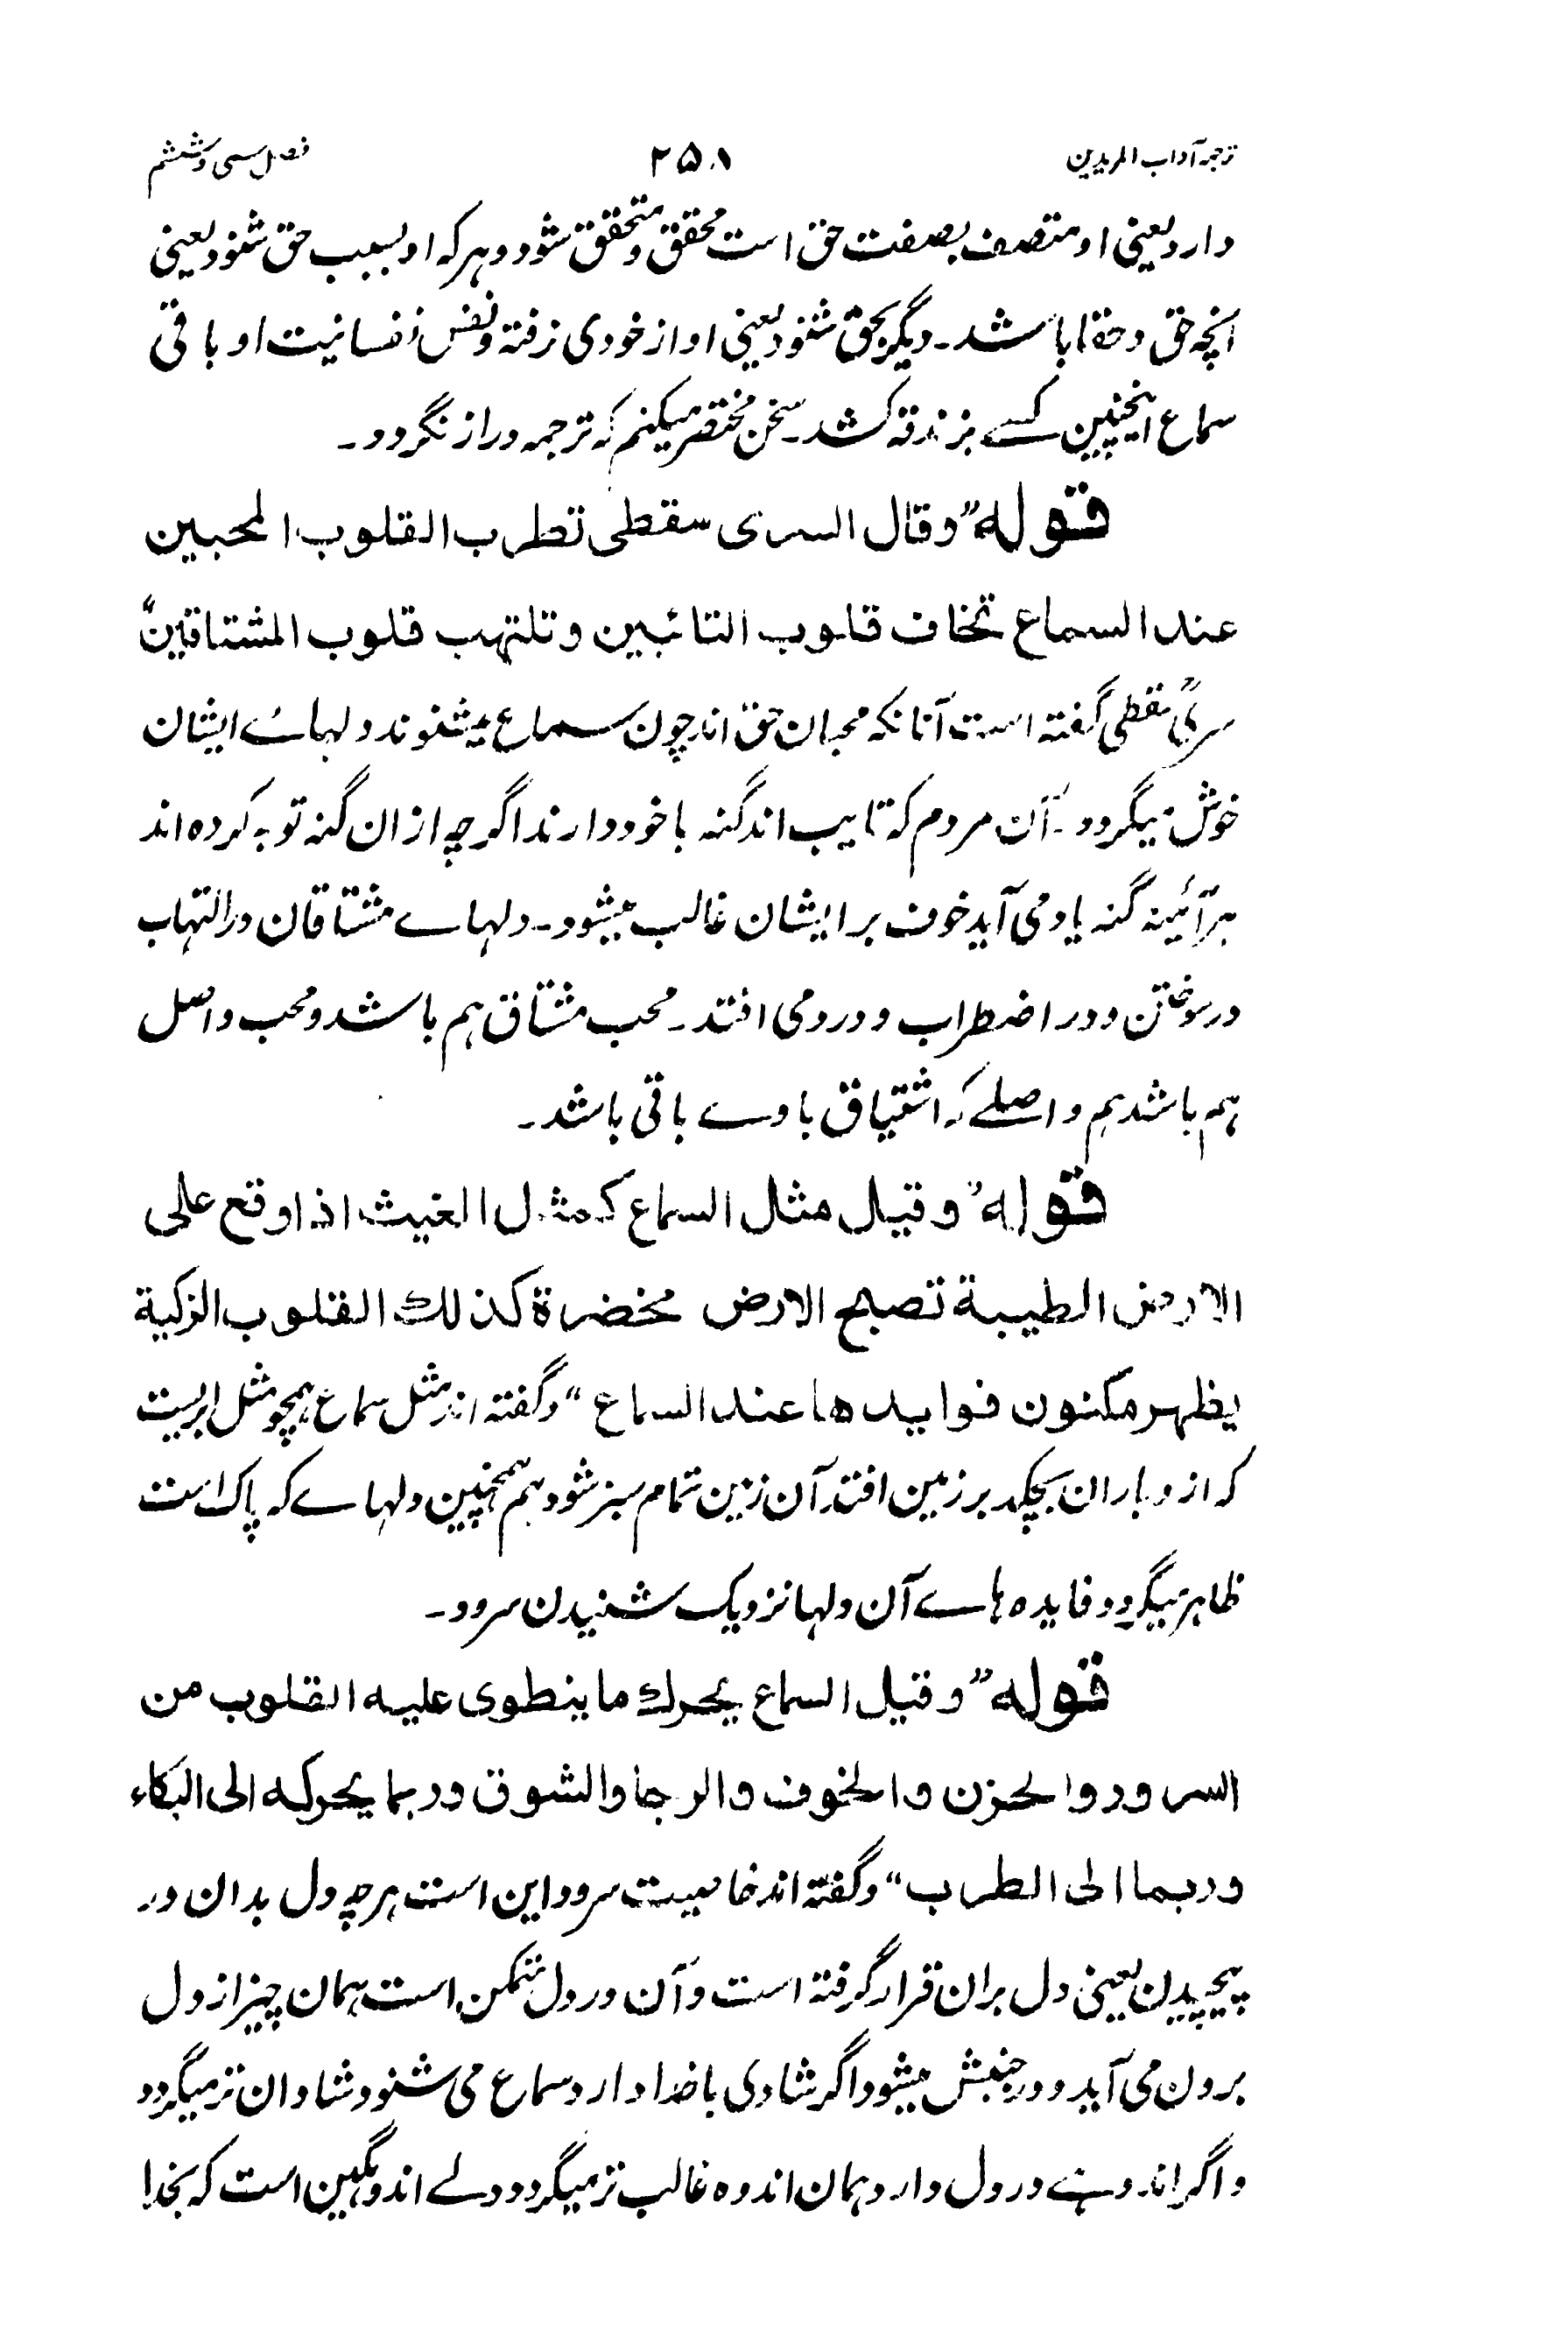 ترجمہ آداب المریدین ۲۵۸ فصل سی و ششم
دارد یعنی او متصف بصفت حق است محقق و متحقق شود و ہرکہ او بسبب حق شنود یعنی
انچہ حق و حقا باشد۔ دیگر بحق شنود یعنی او از خودی نرفتہ و نفس نفسانیت او باقی
سماع اینچنین کسے بزندقہ کشد۔ سخن مختصر میکنم کہ ترجمہ دراز نگردد۔
قوله ”وقال السری سقطی تطرب القلوب المحبین
عند السماع تخاف قلوب التائبین وتلتهب قلوب المشتاقین“
سریؒ سقطی گفتہ است آنانکہ محبان حق اند چون سماع میشنوند دلہائے ایشان
خوش میگردد۔ آن مردم کہ تایب اند گنہ با خود دارند اگرچہ ازان گنہ توبہ کردہ اند
ہر آئینہ گنہ یاد می آید خوف بر ایشان غالب میشود۔ دلہاے مشتاقان در التہاب
در سوختن و در اضطراب و درد می افتد۔ محب مشتاق ہم باشد و محب واصل
ہم باشد ہم واصلے کہ اشتیاق باوے باقی باشد۔
قوله ”وقیل مثل السماع کمثل الغیث اذا وقع علی
الارض الطیبة تصبح الارض مخضرة کذلك القلوب الزکیة
یظهر مکنون فوایدها عند السماع“ و گفتہ اند مثل سماع ہمچو مثل ابریست
کہ ازو باران بچکد بر زمین افتد آن زمین تمام سبز شود ہم ہمچنین دلہاے کہ پاک است
ظاہر میگردد فایدہ ہاے آن دلہا نزدیک شنیدن سرود۔
قوله ”وقیل السماع یحرك ما ینطوی علیه القلوب من
السرور والحزن والخوف والرجا والشوق وربما یحرکه الی البکاء
وربما الی الطرب“ و گفتہ اند خاصیت سرود این است ہرچہ دل بدان در
پیچیدن یعنی دل بران قرار گرفتہ است و آن در دل متمکن است ہمان چیز از دل
برون می آید و در جنبش میشود اگر شادی با خدا دارد سماع می شنود شادان تر میگردد
و اگر اندوہے در دل دارد ہمان اندوہ غالب تر میگردد دلے اندوہگین است کہ بخدا